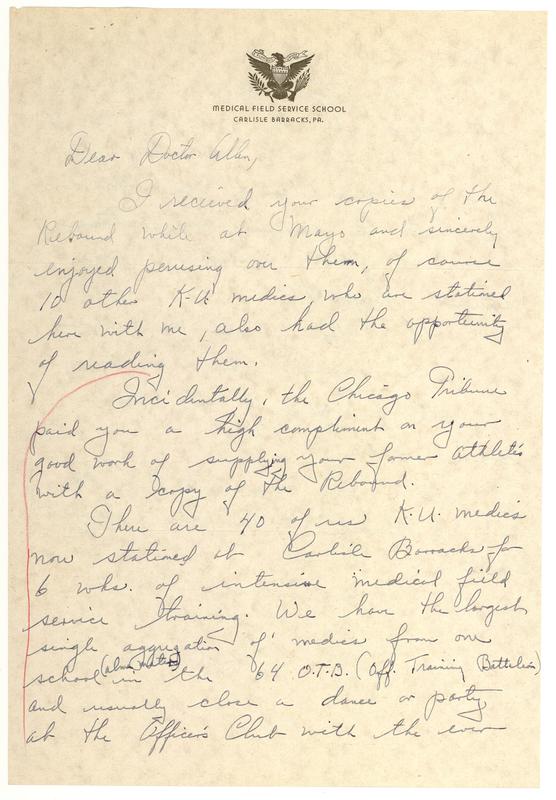 MEDICAL FIELD SERVICE SCHOOL
CARLISLE BARRACKS, PA.
Dear Doctor Allen,
I recieved your copies of the
Rebound while at Mayo and sincerely
enjoyed perusing over them, of course
10 other K.U. medics, who are stationed
here with me, also had the opportunity
of reading them.
Incidentally, the Chicago Tribune
paid you a high compliment on your
good work of supplying your former athletes
with a copy of the Rebound.
There are 40 of us K.U. medics
now stationed at Carlisle Barracks for
6 wks. of intensive medical field
service training. We have the largest
single aggregation of medics from one
school (alma mater) in the 64 O.T.B. (Off. Training Battalion)
and usually close a dance or party
at the Officer's Club with the ever